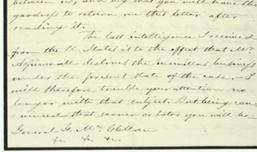 between us, and beg that you will have the
goodness to return me this letter after
reading it.
The last intelligence I received
from the U. States is to the effect that Mr
Aspinwall declines the business
under the present state of the case. I
will therefore trouble your attention no
longer with that subject. But being con
vinced that sooner or later you will be
General G. McClellan
&c &c &c